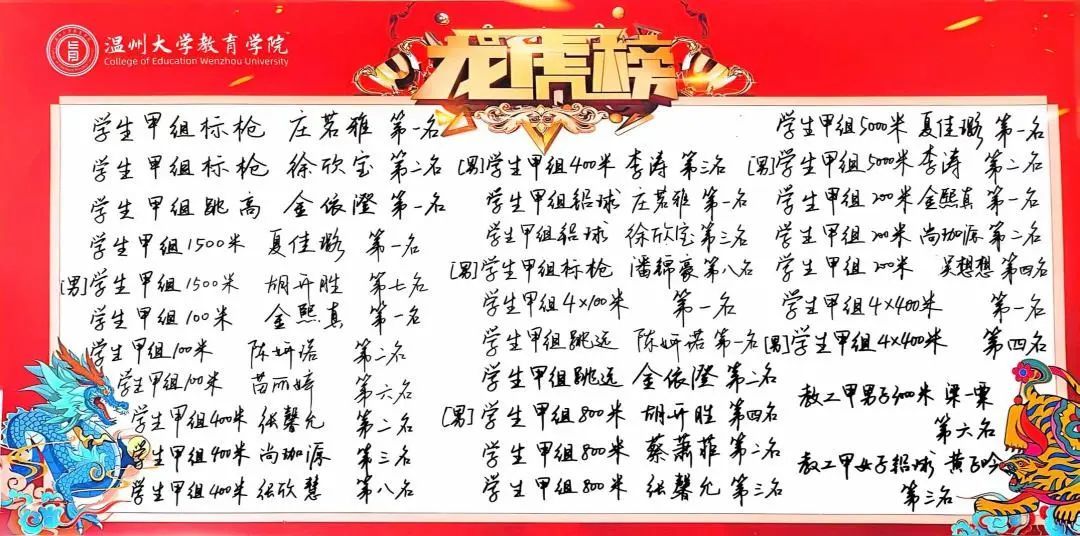 温州大学教育学院
College of Education Wenzhou University
龙虎榜
学生甲组标枪 庄茗雅 第一名
学生甲组标枪 徐欣宝 第二名
学生甲组跳高 金依澄 第一名
学生甲组1500米 夏佳璐 第一名
[男]学生甲组1500米 胡开胜 第七名
学生甲组100米 金熙真 第一名
学生甲组100米 陈妍诺 第二名
学生甲组100米 苗丽婷 第六名
学生甲组400米 张馨允 第二名
学生甲组400米 尚珈源 第三名
学生甲组400米 张欣慧 第八名
[男]学生甲组400米 李涛 第三名
学生甲组铅球 庄茗雅 第一名
学生甲组铅球 徐欣宝 第三名
[男]学生甲组标枪 潘锦豪 第八名
学生甲组4×100米 第一名
学生甲组跳远 陈妍诺 第一名
学生甲组跳远 金依澄 第二名
[男]学生甲组800米 胡开胜 第四名
学生甲组800米 蔡萧菲 第二名
学生甲组800米 张馨允 第三名
学生甲组5000米 夏佳璐 第一名
[男]学生甲组5000米 李涛 第二名
学生甲组200米 金熙真 第一名
学生甲组200米 尚珈源 第二名
学生甲组200米 吴想想 第四名
学生甲组4×400米 第一名
[男]学生甲组4×400米 第四名
教工甲男子 米 梁一栗
第六名
教工甲女子铅球 黄子吟
第三名